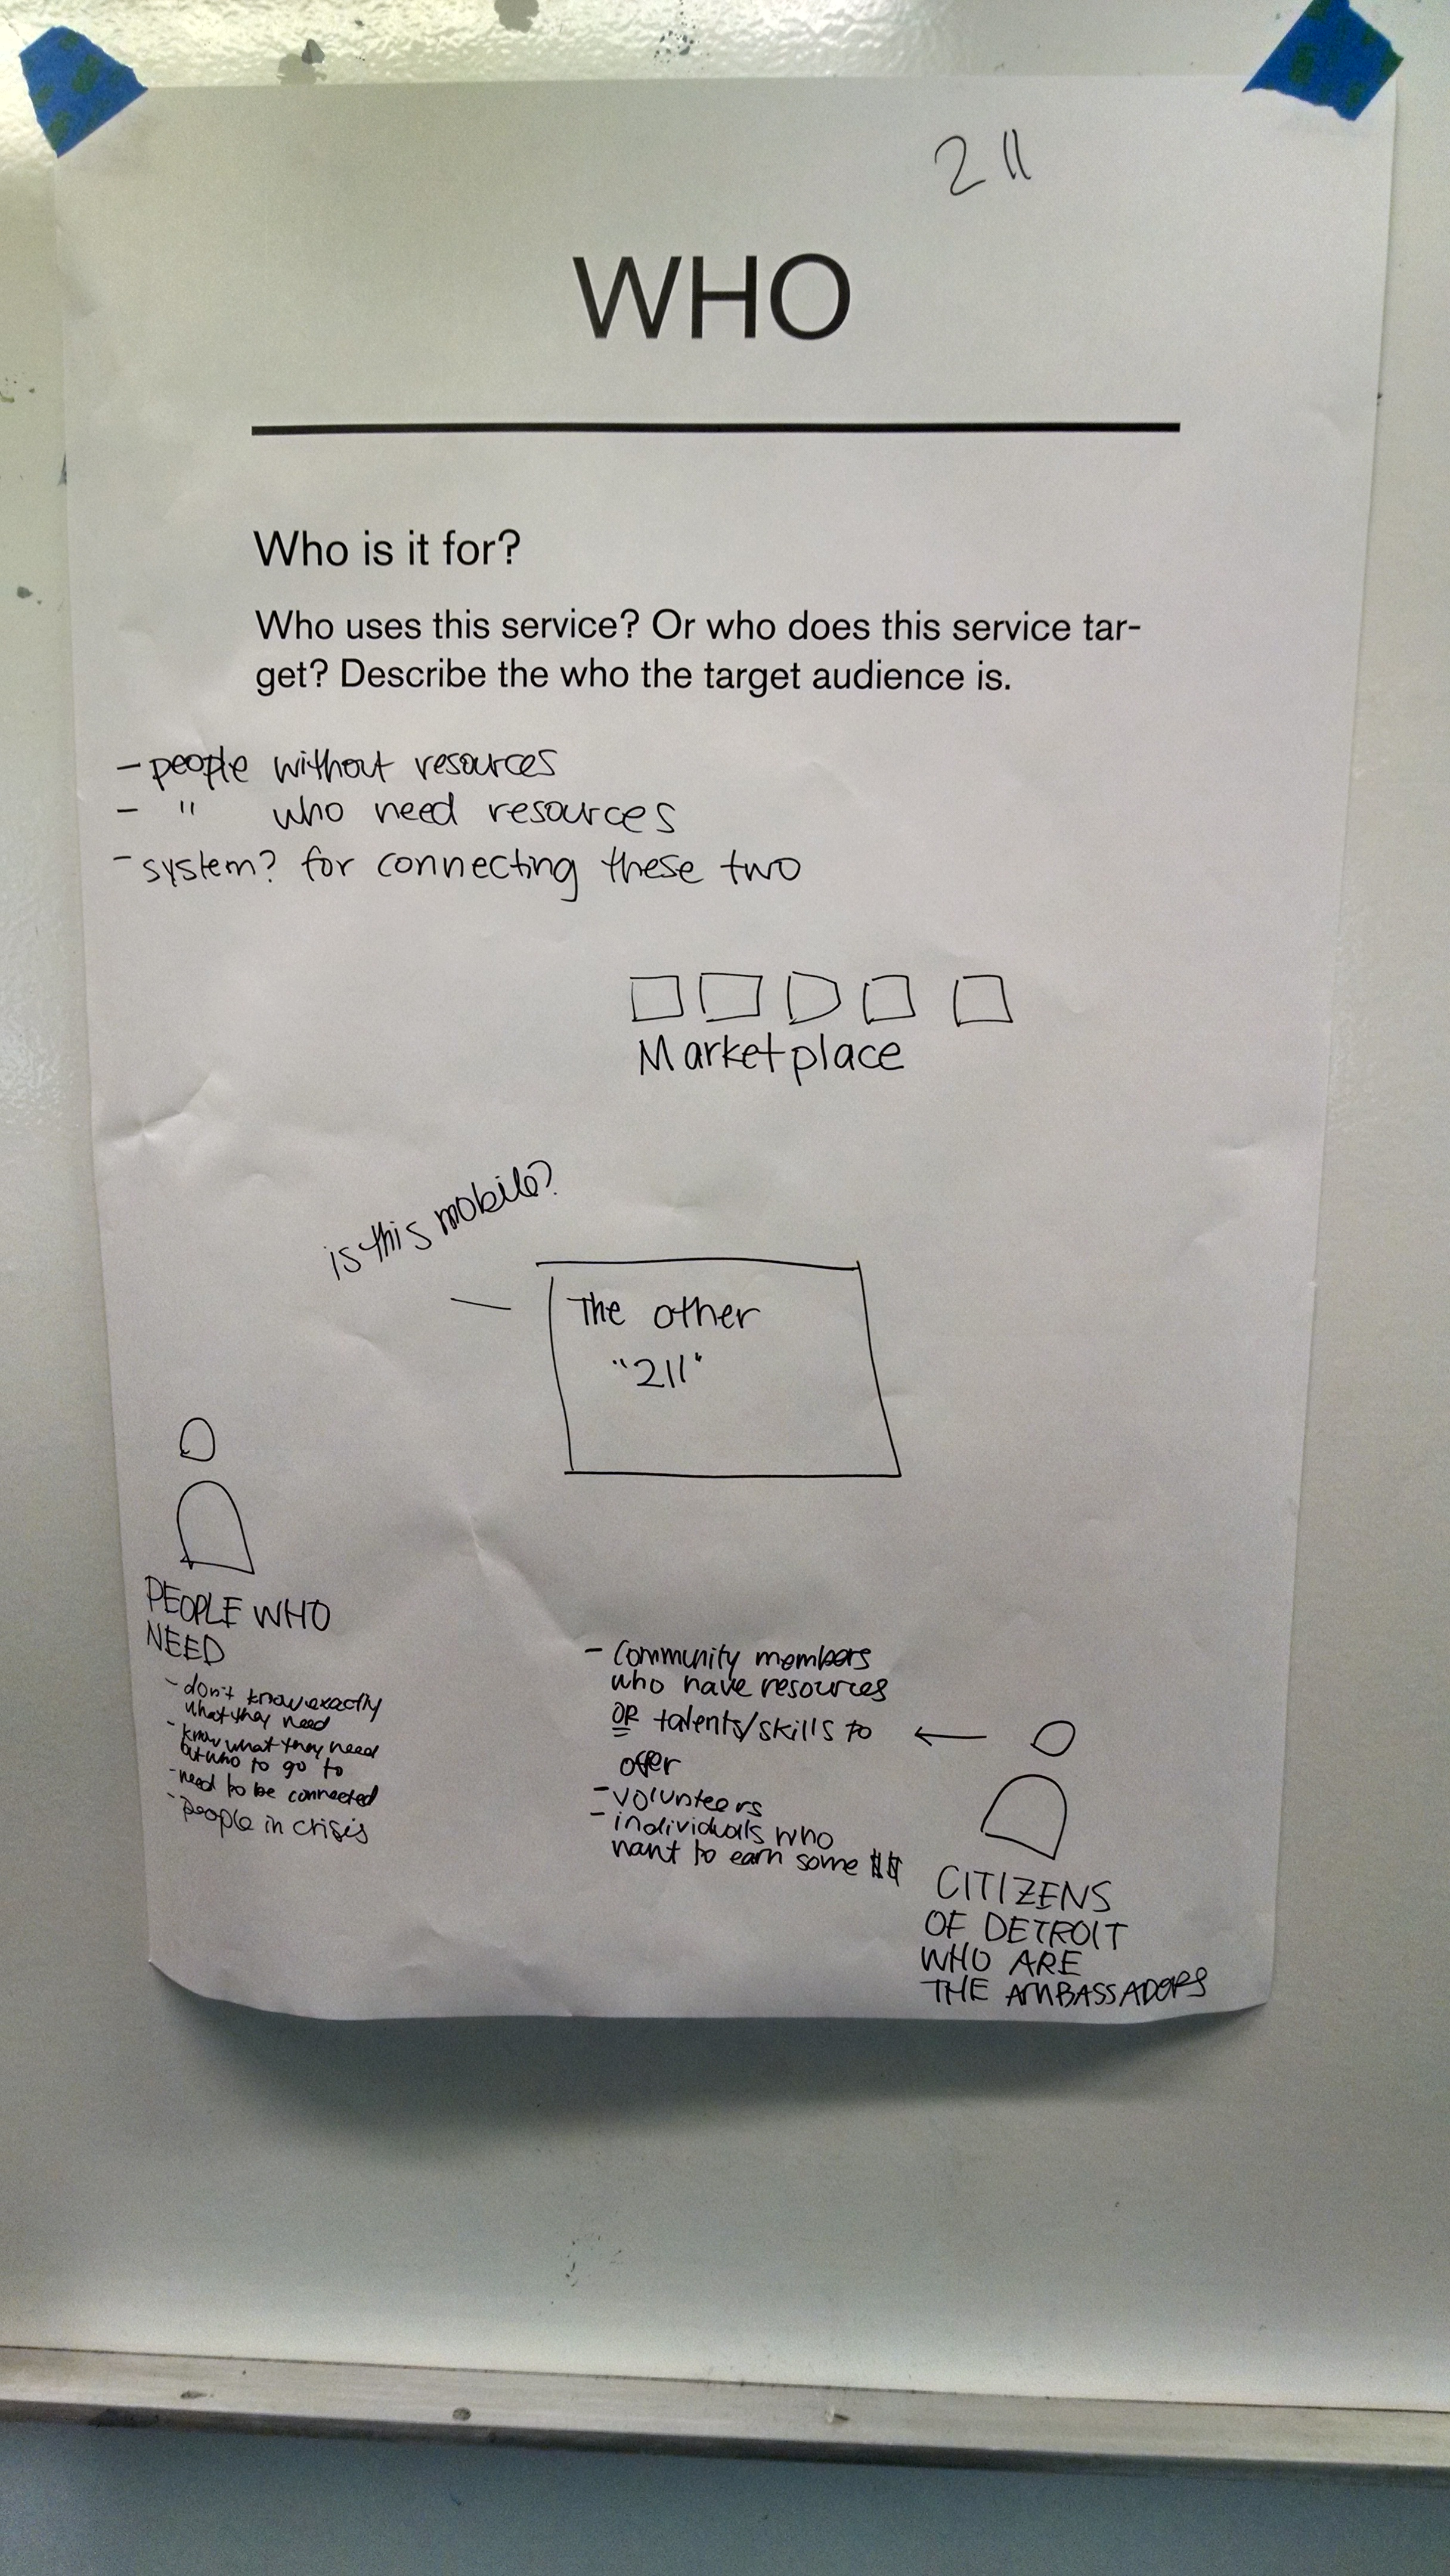 211
WHO
Who is it for?
Who uses this service? Or who does this service tar-
get? Describe the who the target audience is.
- people without resources
- " who need resources
- system? for connecting these two
Marketplace
is this mobile?
The other
"211"
PEOPLE WHO
NEED
- don't know exactly
what they need
- know what they need
but who to go to
- need to be connected
- people in crisis
- Community members
who have resources
OR talents/skills to
offer
- volunteers
- individuals who
want to earn some $$
CITIZENS
OF DETROIT
WHO ARE
THE AMBASSADORS